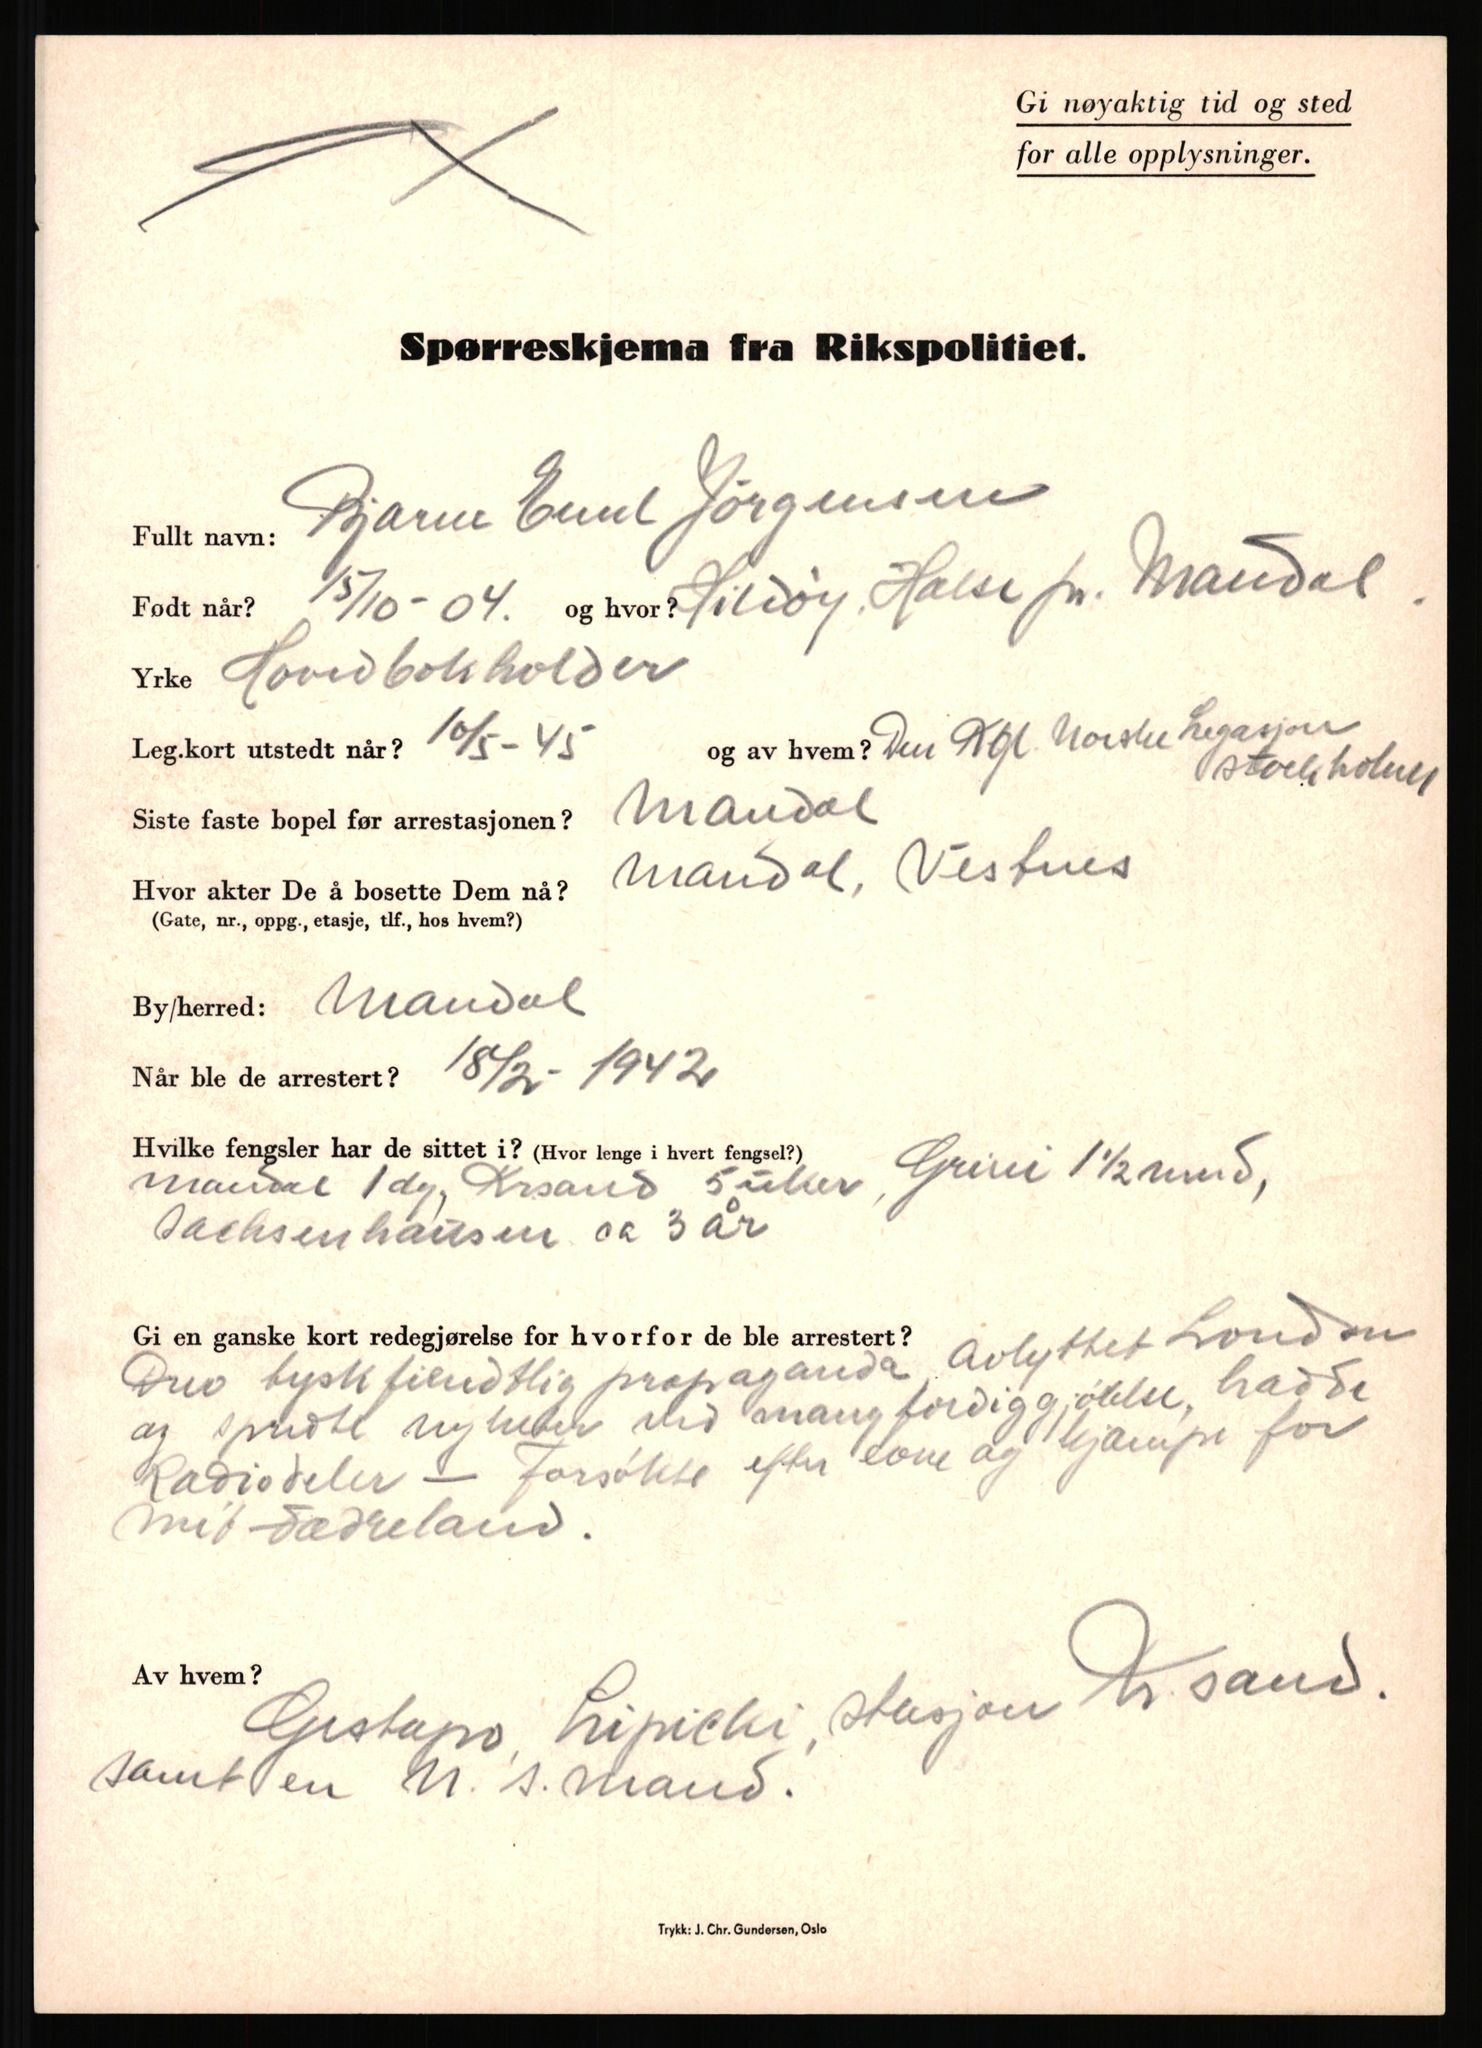 Gi nøyaktig tid og sted
for alle opplysninger.
Spørreskjema fra Rikspolitiet.
Fullt navn: Bjarne Emil Jörgensen
Født når? 15/10-04. og hvor? Hilløy, Halse pr. Mandal.
Yrke Hovedbokholder
Leg.kort utstedt når? 10/5-45 og av hvem? Den Kgl. Norske Legasjon
Stockholm
Siste faste bopel før arrestasjonen? Mandal
Hvor akter De å bosette Dem nå? Mandal, Vestnes
(Gate, nr., oppg., etasje, tlf., hos hvem?)
By/herred: Mandal
Når ble de arrestert? 18/2-1942
Hvilke fengsler har de sittet i? (Hvor lenge i hvert fengsel?)
Mandal 1 dg, Krsand 5 uker, Grini 1 1/2 mnd,
Sachsenhausen ca 3 år
Gi en ganske kort redegjørelse for hvorfor de ble arrestert?
Drev tyskfiendtlig propaganda, avlyttet London
og spredte nyheter ved mangfordiggjökelse, hadde
Radiodeler — Forsökte efter evne og kjæmpe for
mit fædreland.
Av hvem?
Gestapo, Lipicki, stasjon Kr.sand.
samt en N.S. mand.
Trykk: J. Chr. Gundersen, Oslo